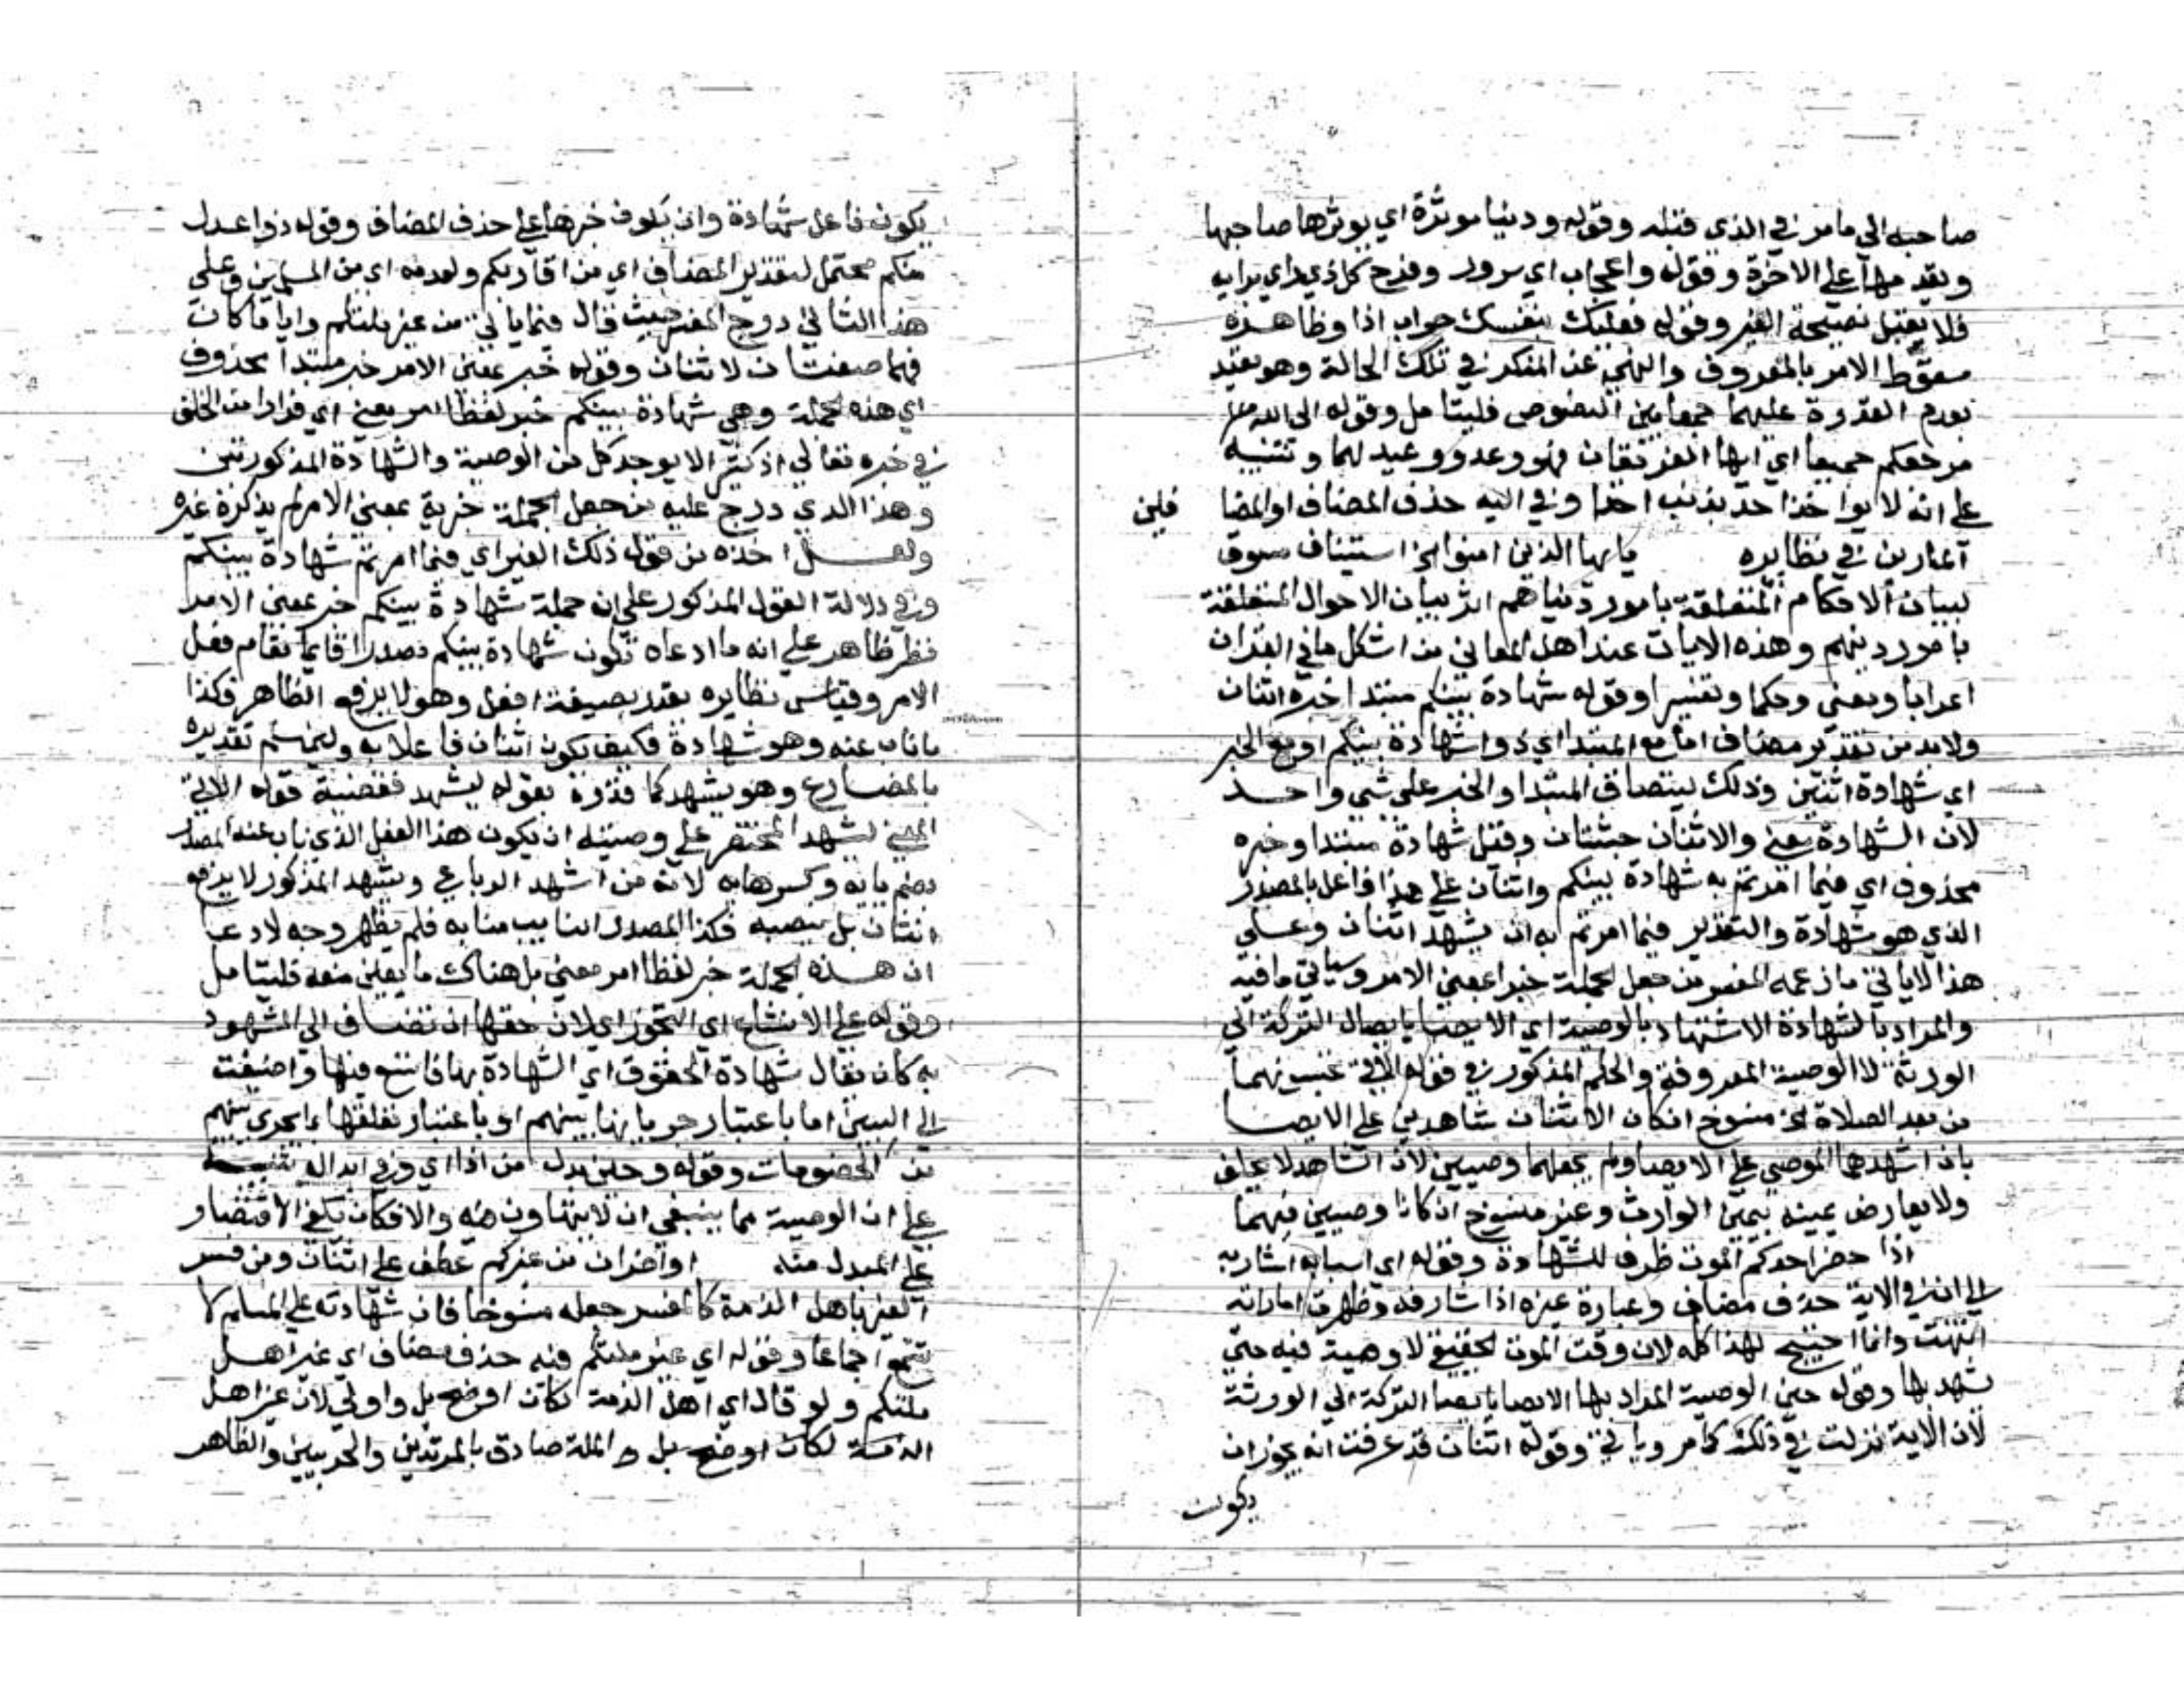 صاحبه الي مامر في الذي قبله وقوله ودنيا موثرة اي يوثرها صاحبها
ويقدمها علي الاخرة وقوله واعجاب اي سرور وفرح كل ذي راي برايه
فلا يقبل نصيحة الغير وقوله فعليك بنفسك جواب اذا وظاهره
سقوط الامر بالمعروف والنهي عن المنكر في تلك الحالة وهو مقيد
بعدم القدرة عليهما جمعا بين النصوص فليتامل وقوله الي الله
مرجعكم جميعا اي ايها الفريقان فهو وعد ووعيد لهما وتنبيه
علي انه لا يواخذ احد بذنب احد وفي اليه حذف المضاف او المضا فلين
المارين في نظايره يايها الذين امنوا الخ استيناف مسوق
لبيان الاحكام المتعلقة بامور دنياهم اثر بيان الاحوال المتعلقة
بامور دينهم وهذه الايات عند اهل المعاني من اشكل ما في القران
اعرابا ومعني وحكما وتفسيرا وقوله شهادة بينكم مبتدا خبره اثنان
ولابد من تقدير مضاف اما مع المبتدا اي ذوا شهادة بينكم او مع الخبر
اي شهادة اثنين وذلك ليتصادق المبتدا والخبر علي شي واحد
لان الشهادة معني والاثنان جثتان وقيل شهادة مبتدا وخبره
محذوف اي فيما امرتم به شهادة بينكم واثنان علي هذا فاعل بالمصدر
الذي هو شهادة والتقدير فيما امرتم به ان يشهد اثنان وعلي
هذا لا ياتي ما زعمه المفسر من جعل الجملة خبرا بمعني الامر وسياتي ما فيه
والمراد بالشهادة الاشهاد بالوصية اي الايصا بايصال التركة الي
الورثة لا الوصية المعروفة والحكم المذكور في قوله الاتي تحبسونهما
من بعد الصلاة الخ منسوخ ان كان الاثنان شاهدين علي الايصا
بان اشهدهما الموصي علي الايصا ولم يجعلهما وصيين لان الشاهد لا يحلف
ولا يعارض يمينه بيمين الوارث وغير منسوخ ان كانا وصيين فيهما
اذا حضر احدكم الموت ظرف للشهادة وقوله اي اسبابه اشار به
الي ان في الاية حذف مضاف وعبارة غيره اذا شارفه وظهرت اماراته
انتهت وانما احتيج لهذا كله لان وقت الموت الحقيقي لا وصية فيه حتي
يشهد بها وقوله حين الوصية المراد بها الايصا بايصا التركة الي الورثة
لان الاية نزلت في ذلك كما مر وياتي وقوله اثنان قد عرفت انه يجوز ان
يكون
يكون فاعل شهادة وان يكون خبرها علي حذف المضاف وقوله ذوا عدل
منكم محتمل لتقدير المضاف اي من اقاربكم ولعدمه اي من المسلمين وعلي
هذا الثاني درج المفسر حيث قال فيما ياتي من غير ملتكم وايا ما كان
فهما صفتان لاثنان وقوله خبر بمعني الامر خبر مبتدا محذوف
اي هذه الجملة وهي شهادة بينكم خبر لفظا امر معني اي فرارا من الخلف
في خبره تعالي اذ كثير الا يوجد كل من الوصية والشهادة المذكورتين
وهذا الذي درج عليه من جعل الجملة خبرية بمعني الامر لم يذكره غيره
ولعله اخذه من قول ذلك الغير اي فيما امرتم شهادة بينكم
وفي دلالة القول المذكور علي ان جملة شهادة بينكم خبر بمعني الامر
نظر ظاهر علي انه ما ادعاه تكون شهادة بينكم مصدرا قايما مقام فعل
الامر وقياس نظايره يقدر بصيغة افعل وهو لا يرفع الظاهر فكذا
ما ناب عنه وهو شهادة فكيف يكون اثنان فاعلا به وتقديره
بالمضارع وهو يشهد كما قدره بقوله ليشهد فقضية قوله الاتي
المعني ليشهد المحتضر علي وصيته ان يكون هذا الفعل الذي ناب عنه المصدر
بضم يايه وكسر هايه لانه من اشهد الرباعي ويشهد المذكور لا يرفع
اثنان بل ينصبه فكذا المصدر النايب منابه فلم يظهر وجه لادعا
ان هذه الجملة خبر لفظا امر معني بل هناك ما يعين منعه فليتامل
وقوله علي الاتساع اي التجوز اي لان حقها ان تضاف الي المشهود
به كان يقال شهادة الحقوق اي الشهادة بها فاتسع فيها واضيفت
الي البين اما باعتبار جريانها بينهم او باعتبار تعلقها بما يجري بينهم
من الخصومات وقوله وحين بدل من اذا اي وفي ابداله تنبيه
علي ان الوصية مما ينبغي ان لا يتهاون فيه والا فكان يكفي الاقتصار
علي المبدل منه او اخران من غيركم عطف علي اثنان ومن فسر
الغير باهل الذمة كالمفسر جعله منسوخا فان شهادته علي المسلم لا
تسمع اجماعا وقوله اي غير ملتكم فيه حذف مضاف اي غير اهل
ملتكم ولو قال اي اهل الذمة لكان اوضح بل واولي لان غير اهل
الذمة لكان اوضح بل الملة صادق بالمرتدين والحربيين والظاهر